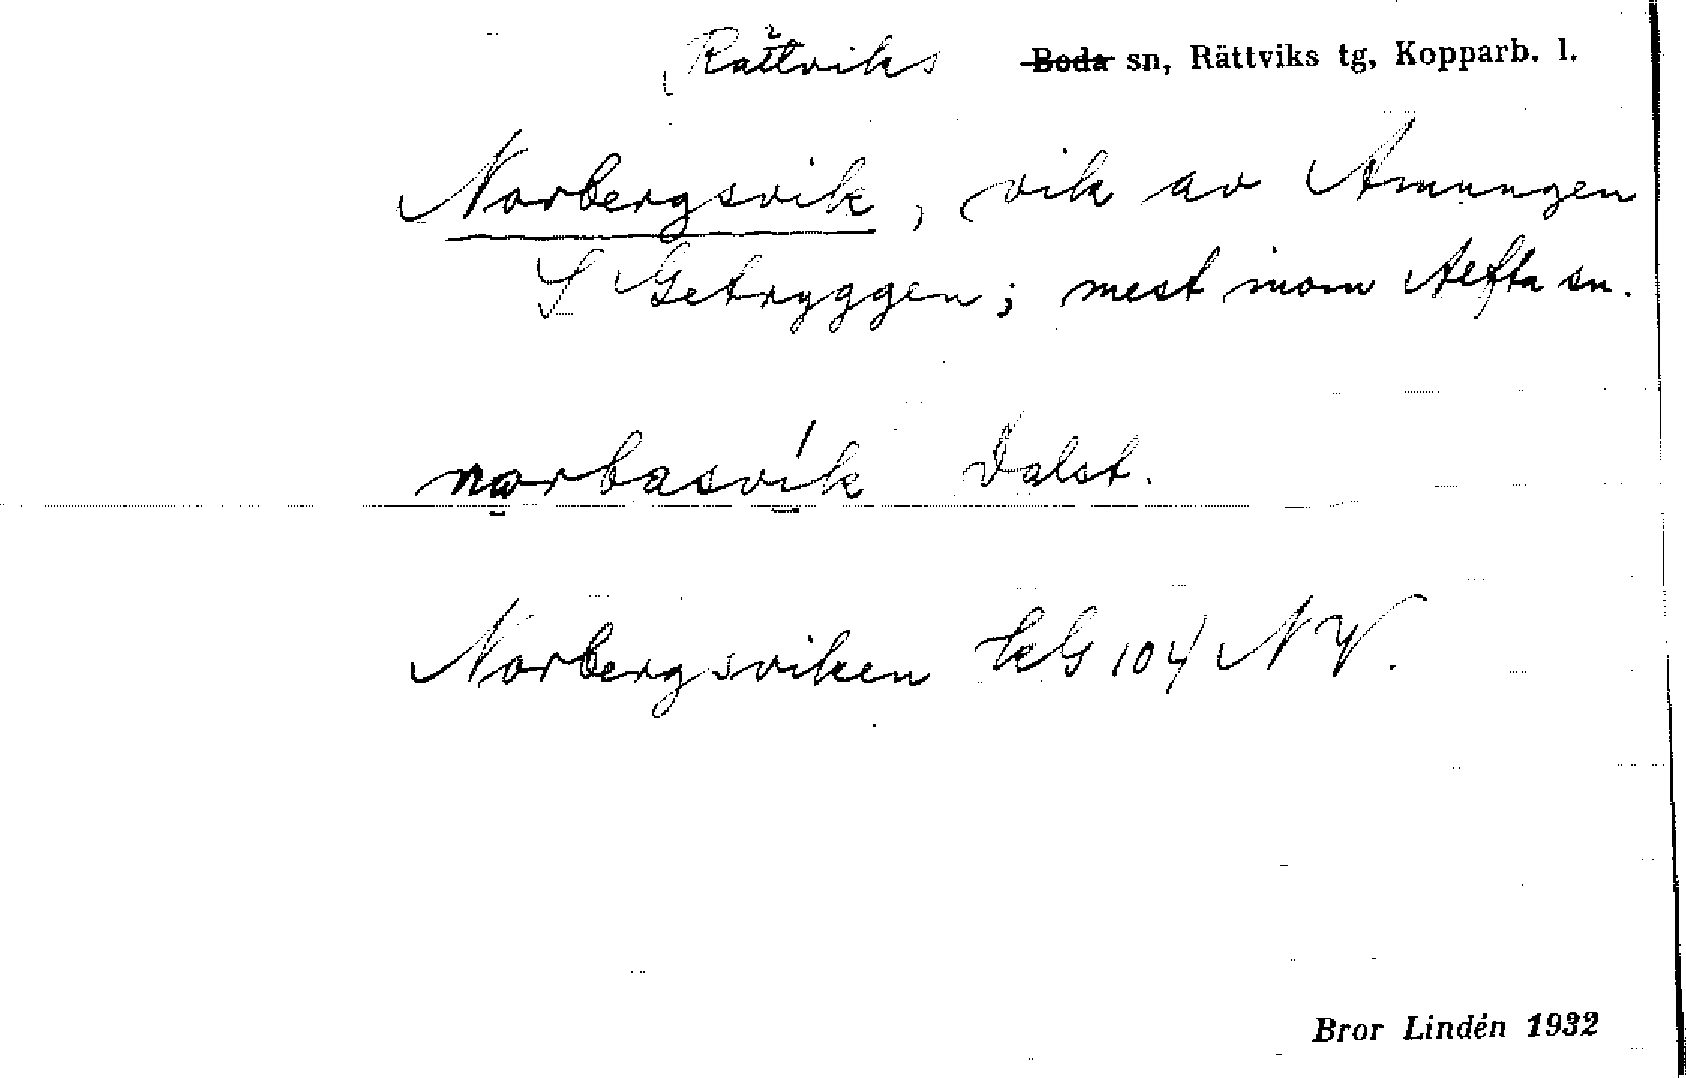 Rättviks Boda sn, Rättviks tg, Kopparb. l.
Norbergsvik, vik av Amungen
S Getryggen; mest inom Alfta sn.
norbasvík Dalst.
Norbergsviken kG 104 NV.
Bror Lindén 1932